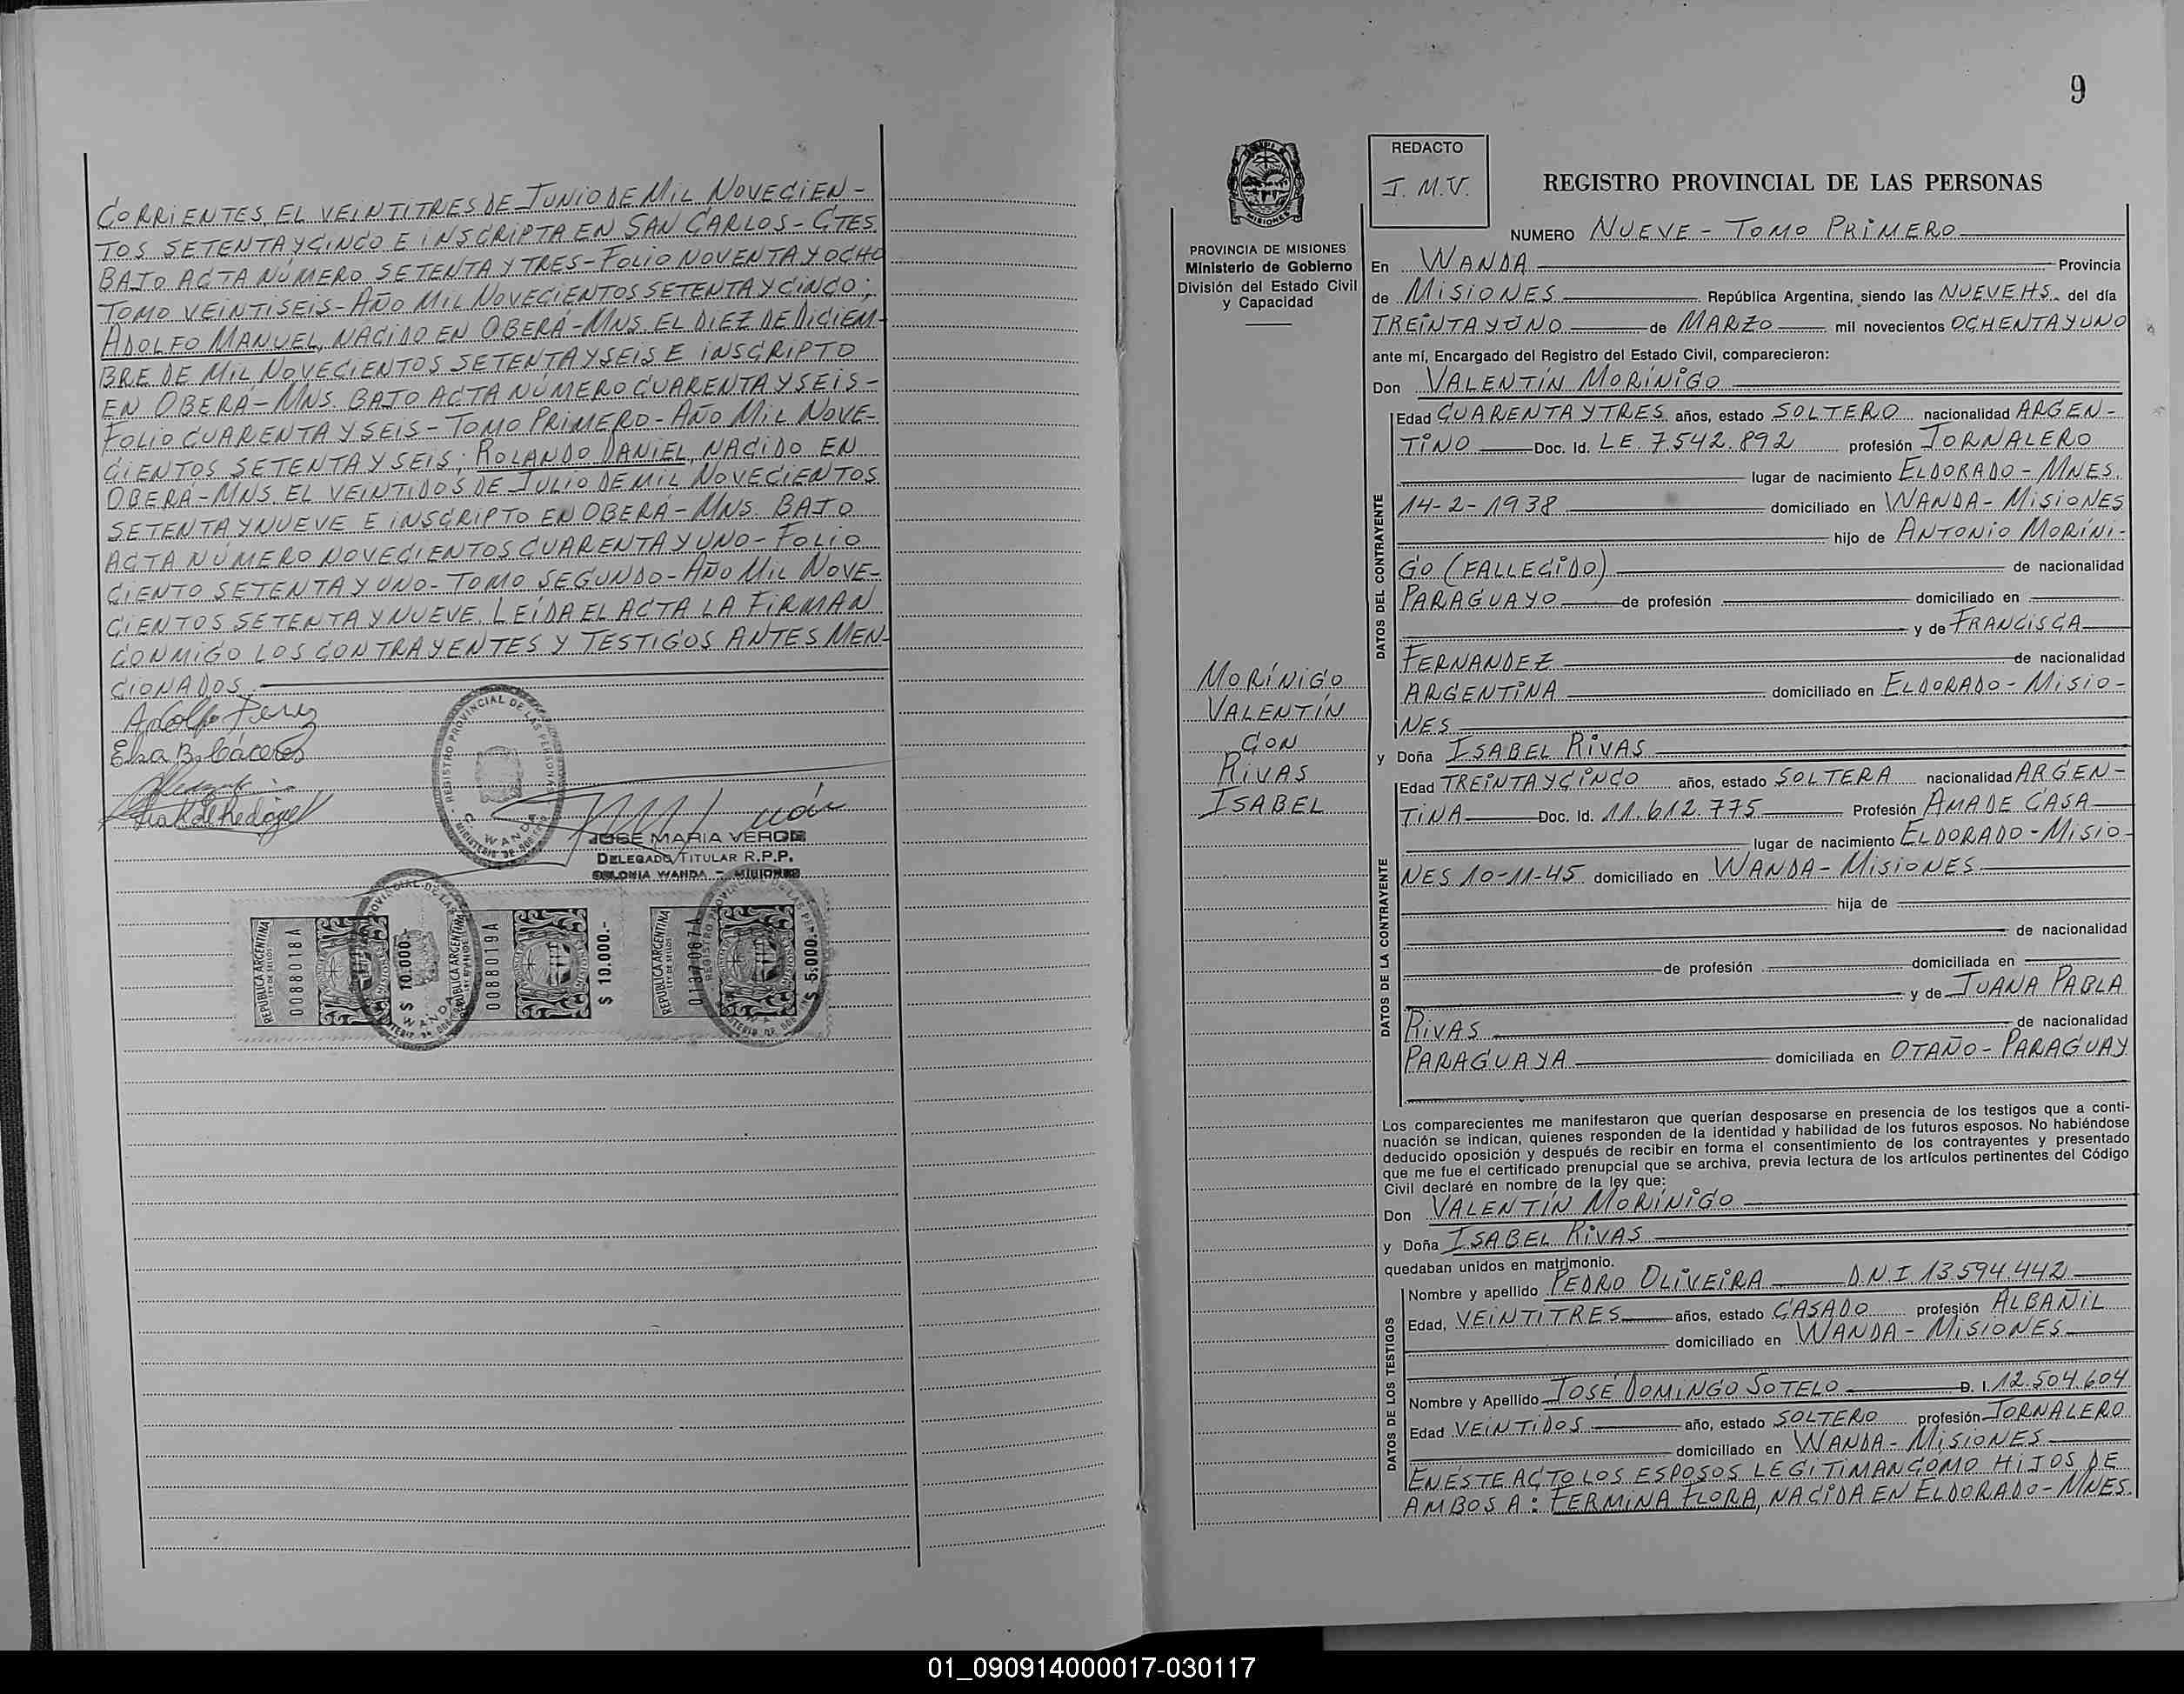 CORRIENTES, EL VEINTITRES DE JUNIO DE MIL NOVECIEN-
TOS SETENTA Y CINCO E INSCRIPTA EN SAN CARLOS - CTES.
BAJO ACTA NÚMERO SETENTA Y TRES - FOLIO NOVENTA Y OCHO
TOMO VEINTISEIS - AÑO MIL NOVECIENTOS SETENTA Y CINCO;
ADOLFO MANUEL, NACIDO EN OBERÁ - MNS. EL DIEZ DE DICIEM-
BRE DE MIL NOVECIENTOS SETENTA Y SEIS E INSCRIPTO
EN OBERÁ - MNS. BAJO ACTA NÚMERO CUARENTA Y SEIS -
FOLIO CUARENTA Y SEIS - TOMO PRIMERO - AÑO MIL NOVE-
CIENTOS SETENTA Y SEIS; ROLANDO DANIEL, NACIDO EN
OBERÁ - MNS. EL VEINTIDOS DE JULIO DE MIL NOVECIENTOS
SETENTA Y NUEVE E INSCRIPTO EN OBERÁ - MNS. BAJO
ACTA NÚMERO NOVECIENTOS CUARENTA Y UNO - FOLIO
CIENTO SETENTA Y UNO - TOMO SEGUNDO - AÑO MIL NOVE-
CIENTOS SETENTA Y NUEVE. LEÍDA EL ACTA LA FIRMAN
CONMIGO LOS CONTRAYENTES Y TESTIGOS ANTES MEN-
CIONADOS.
Adolfo
Elsa B. Cáceres
REGISTRO PROVINCIAL DE LAS PERSONAS
WANDA
JOSE MARIA VERON
DELEGADO TITULAR R.P.P.
COLONIA WANDA - MISIONES
REPUBLICA ARGENTINA
LEY DE SELLOS
0088018A
$ 10.000.-
REPUBLICA ARGENTINA
0088019A
$ 10.000.-
REPUBLICA ARGENTINA
LEY DE SELLOS
$ 5.000.-
9
REDACTO
J. M. V.
REGISTRO PROVINCIAL DE LAS PERSONAS
NUMERO NUEVE - TOMO PRIMERO
MISIONES
PROVINCIA DE MISIONES
Ministerio de Gobierno
División del Estado Civil
y Capacidad
MORÍNIGO
VALENTÍN
CON
RIVAS
ISABEL
En WANDA Provincia
de MISIONES República Argentina, siendo las NUEVE HS. del día
TREINTA Y UNO de MARZO mil novecientos OCHENTA Y UNO
ante mí, Encargado del Registro del Estado Civil, comparecieron:
Don VALENTÍN MORÍNIGO
DATOS DEL CONTRAYENTE
Edad CUARENTA Y TRES años, estado SOLTERO nacionalidad ARGEN-
TINO Doc. Id. LE. 7.542.892 profesión JORNALERO
lugar de nacimiento ELDORADO - MNES.
14-2-1938 domiciliado en WANDA - MISIONES
hijo de ANTONIO MORÍNI-
GO (FALLECIDO) de nacionalidad
PARAGUAYO de profesión domiciliado en
y de FRANCISCA
FERNANDEZ de nacionalidad
ARGENTINA domiciliado en ELDORADO - MISIO-
NES
y Doña ISABEL RIVAS
DATOS DE LA CONTRAYENTE
Edad TREINTA Y CINCO años, estado SOLTERA nacionalidad ARGEN-
TINA Doc. Id. 11.612.775 Profesión AMA DE CASA
lugar de nacimiento ELDORADO - MISIO-
NES 10-11-45 domiciliado en WANDA - MISIONES
hija de
de nacionalidad
de profesión domiciliada en
y de JUANA PABLA
RIVAS de nacionalidad
PARAGUAYA domiciliada en OTAÑO - PARAGUAY
Los comparecientes me manifestaron que querían desposarse en presencia de los testigos que a conti-
nuación se indican, quienes responden de la identidad y habilidad de los futuros esposos. No habiéndose
deducido oposición y después de recibir en forma el consentimiento de los contrayentes y presentado
que me fue el certificado prenupcial que se archiva, previa lectura de los artículos pertinentes del Código
Civil declaré en nombre de la ley que:
Don VALENTÍN MORÍNIGO
y Doña ISABEL RIVAS
quedaban unidos en matrimonio.
DATOS DE LOS TESTIGOS
Nombre y apellido PEDRO OLIVEIRA D.N.I 13.594.442
Edad, VEINTITRES años, estado CASADO profesión ALBAÑIL
domiciliado en WANDA - MISIONES
Nombre y Apellido JOSÉ DOMINGO SOTELO D. I. 12.504.604
Edad VEINTIDOS año, estado SOLTERO profesión JORNALERO
domiciliado en WANDA - MISIONES
EN ÉSTE ACTO LOS ESPOSOS LEGITIMAN COMO HIJOS DE
AMBOS A: FERMINA FLORA, NACIDA EN ELDORADO - MNES.
01_090914000017-030117